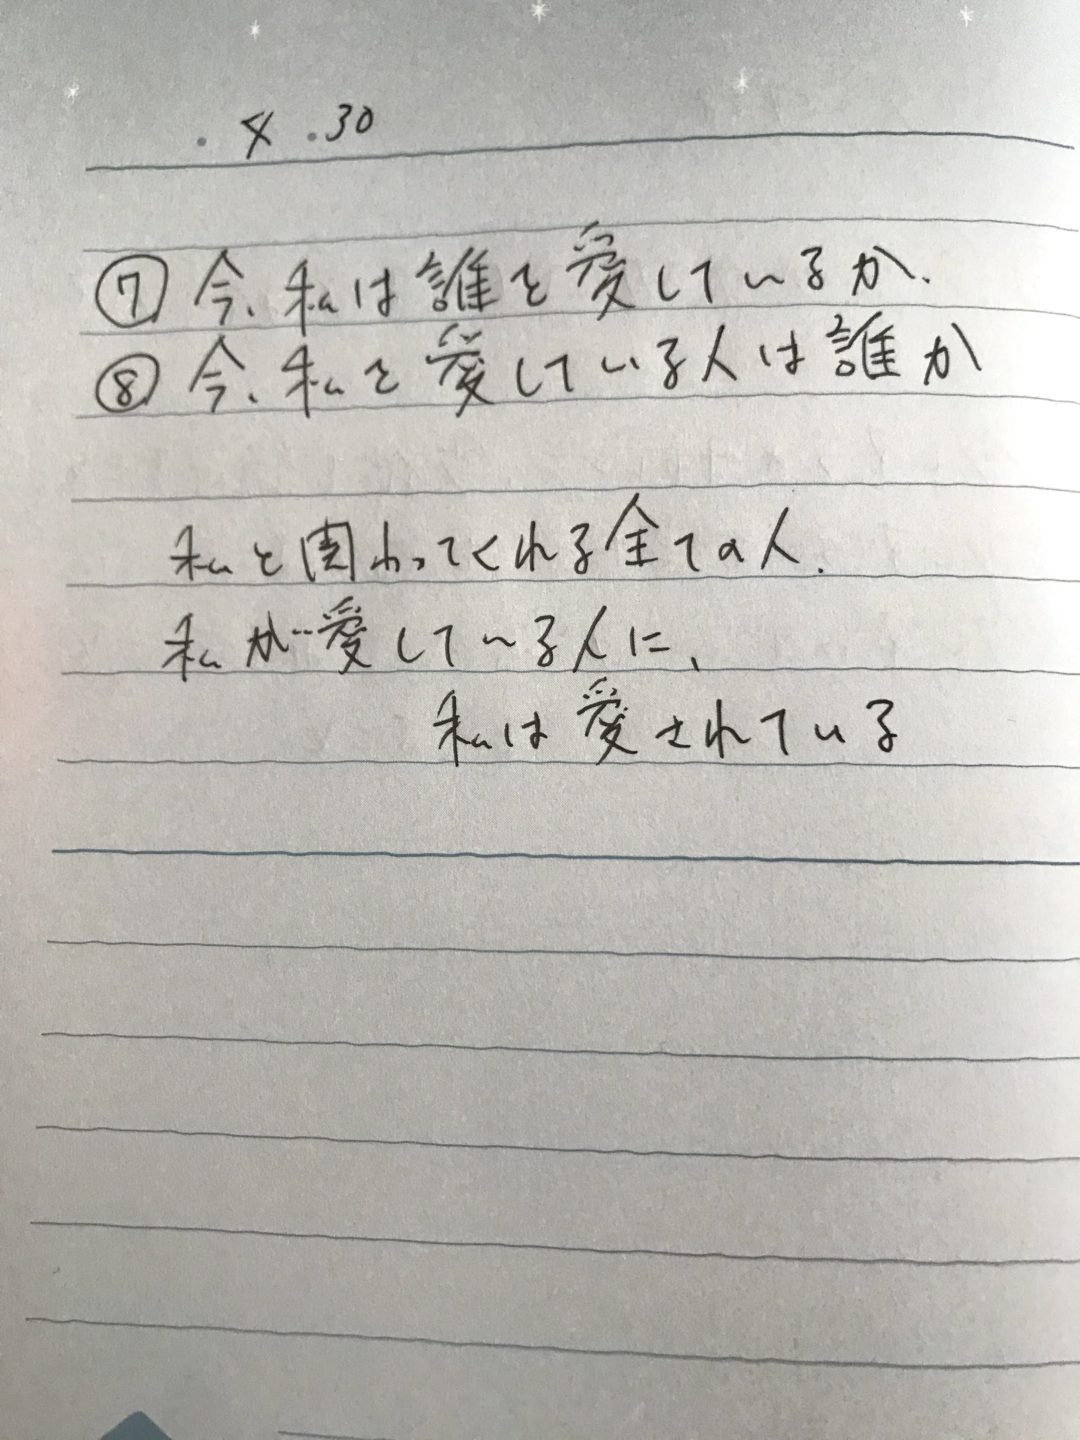 . 4 .30
⑦ 今、私は誰を愛しているか.
⑧ 今、私を愛している人は誰か
私と関わってくれる全ての人.
私が愛している人に、
私は愛されている